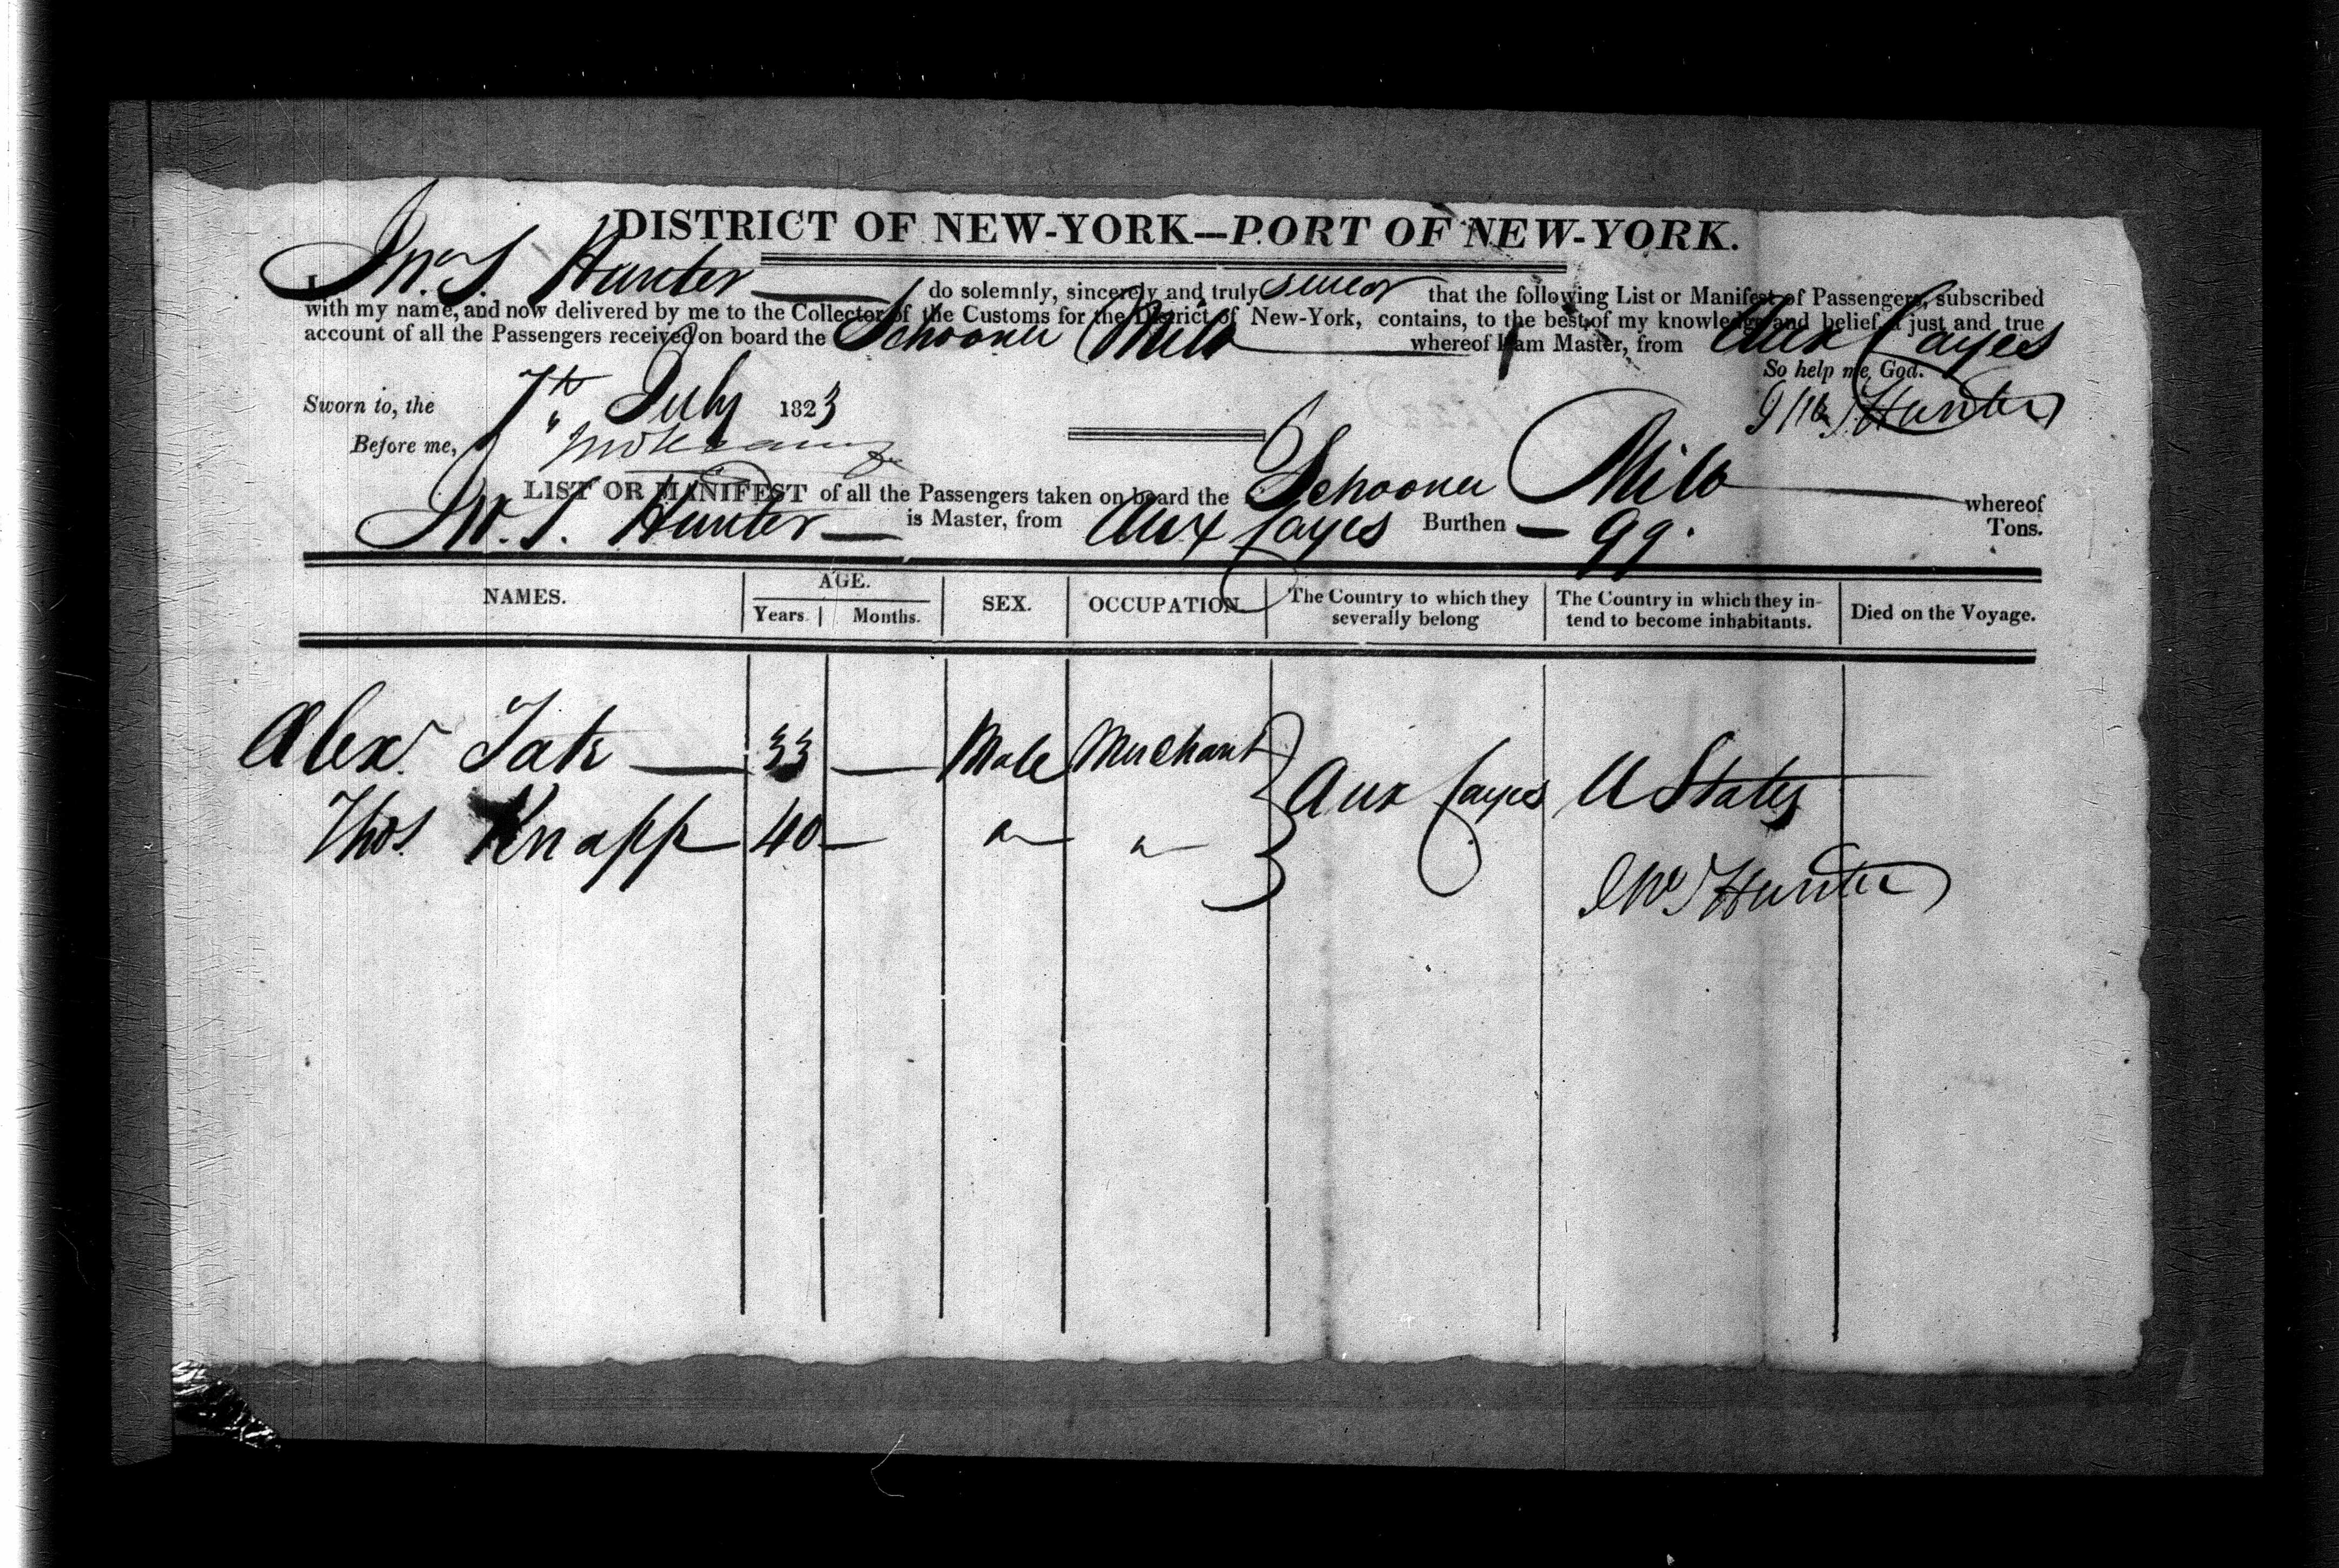 DISTRICT OF NEW-YORK—PORT OF NEW-YORK.
I, Jno. T. Hunter do solemnly, sincerely and truly swear that the following List or Manifest of Passengers, subscribed
with my name, and now delivered by me to the Collector of the Customs for the District of New-York, contains, to the best of my knowledge and belief, a just and true
account of all the Passengers received on board the Schooner Milo whereof I am Master, from Aux Cayes
So help me God.
Sworn to, the 7th July 1823 Jno T Hunter
Before me,
LIST OR MANIFEST of all the Passengers taken on board the Schooner Milo whereof
Jno. T. Hunter is Master, from Aux Cayes Burthen 99. Tons.
NAMES. AGE. Years. Months. SEX. OCCUPATION. The Country to which they severally belong The Country in which they intend to become inhabitants. Died on the Voyage.
Alexr. Tate — 33 — Male Merchant
Aux Cayes U States
Thos. Knapp — 40 — " "
Jno T Hunter